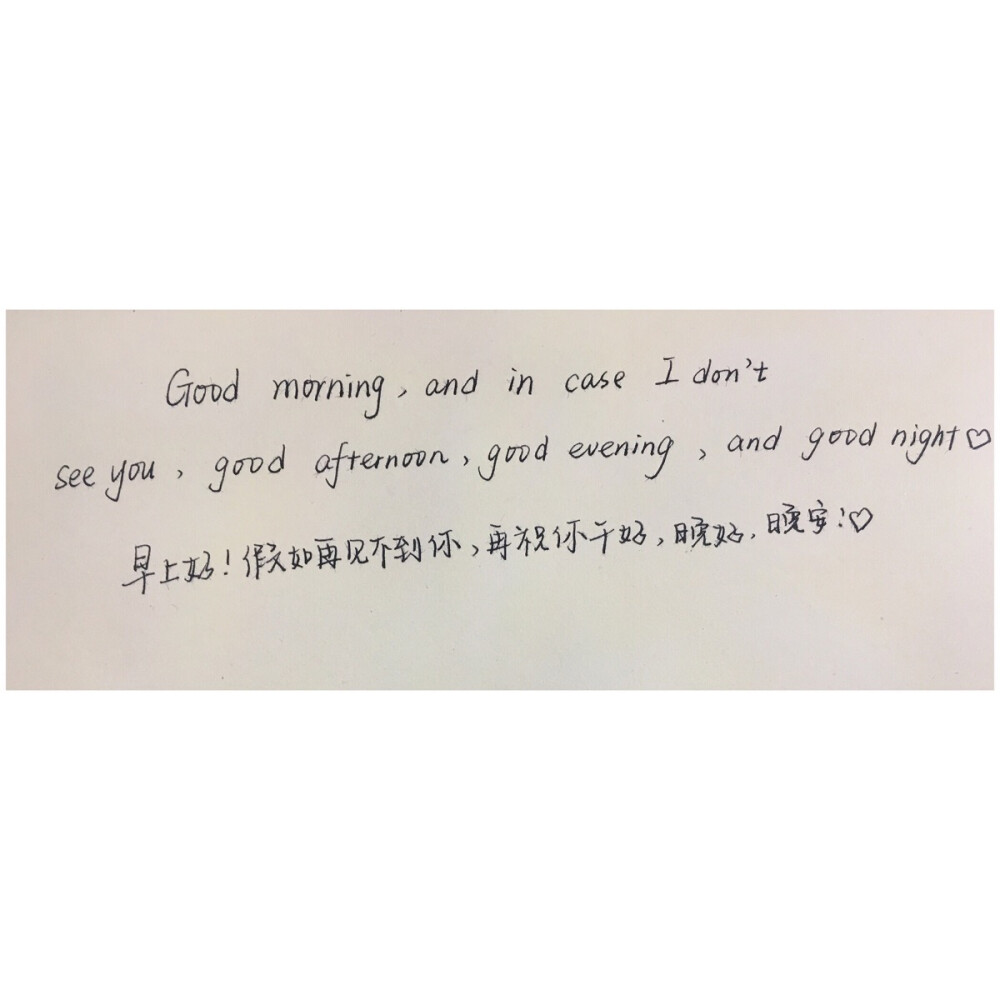 Good morning, and in case I don't
see you, good afternoon, good evening, and good night♡
早上好!假如再见不到你,再祝你午好,晚好,晚安!♡